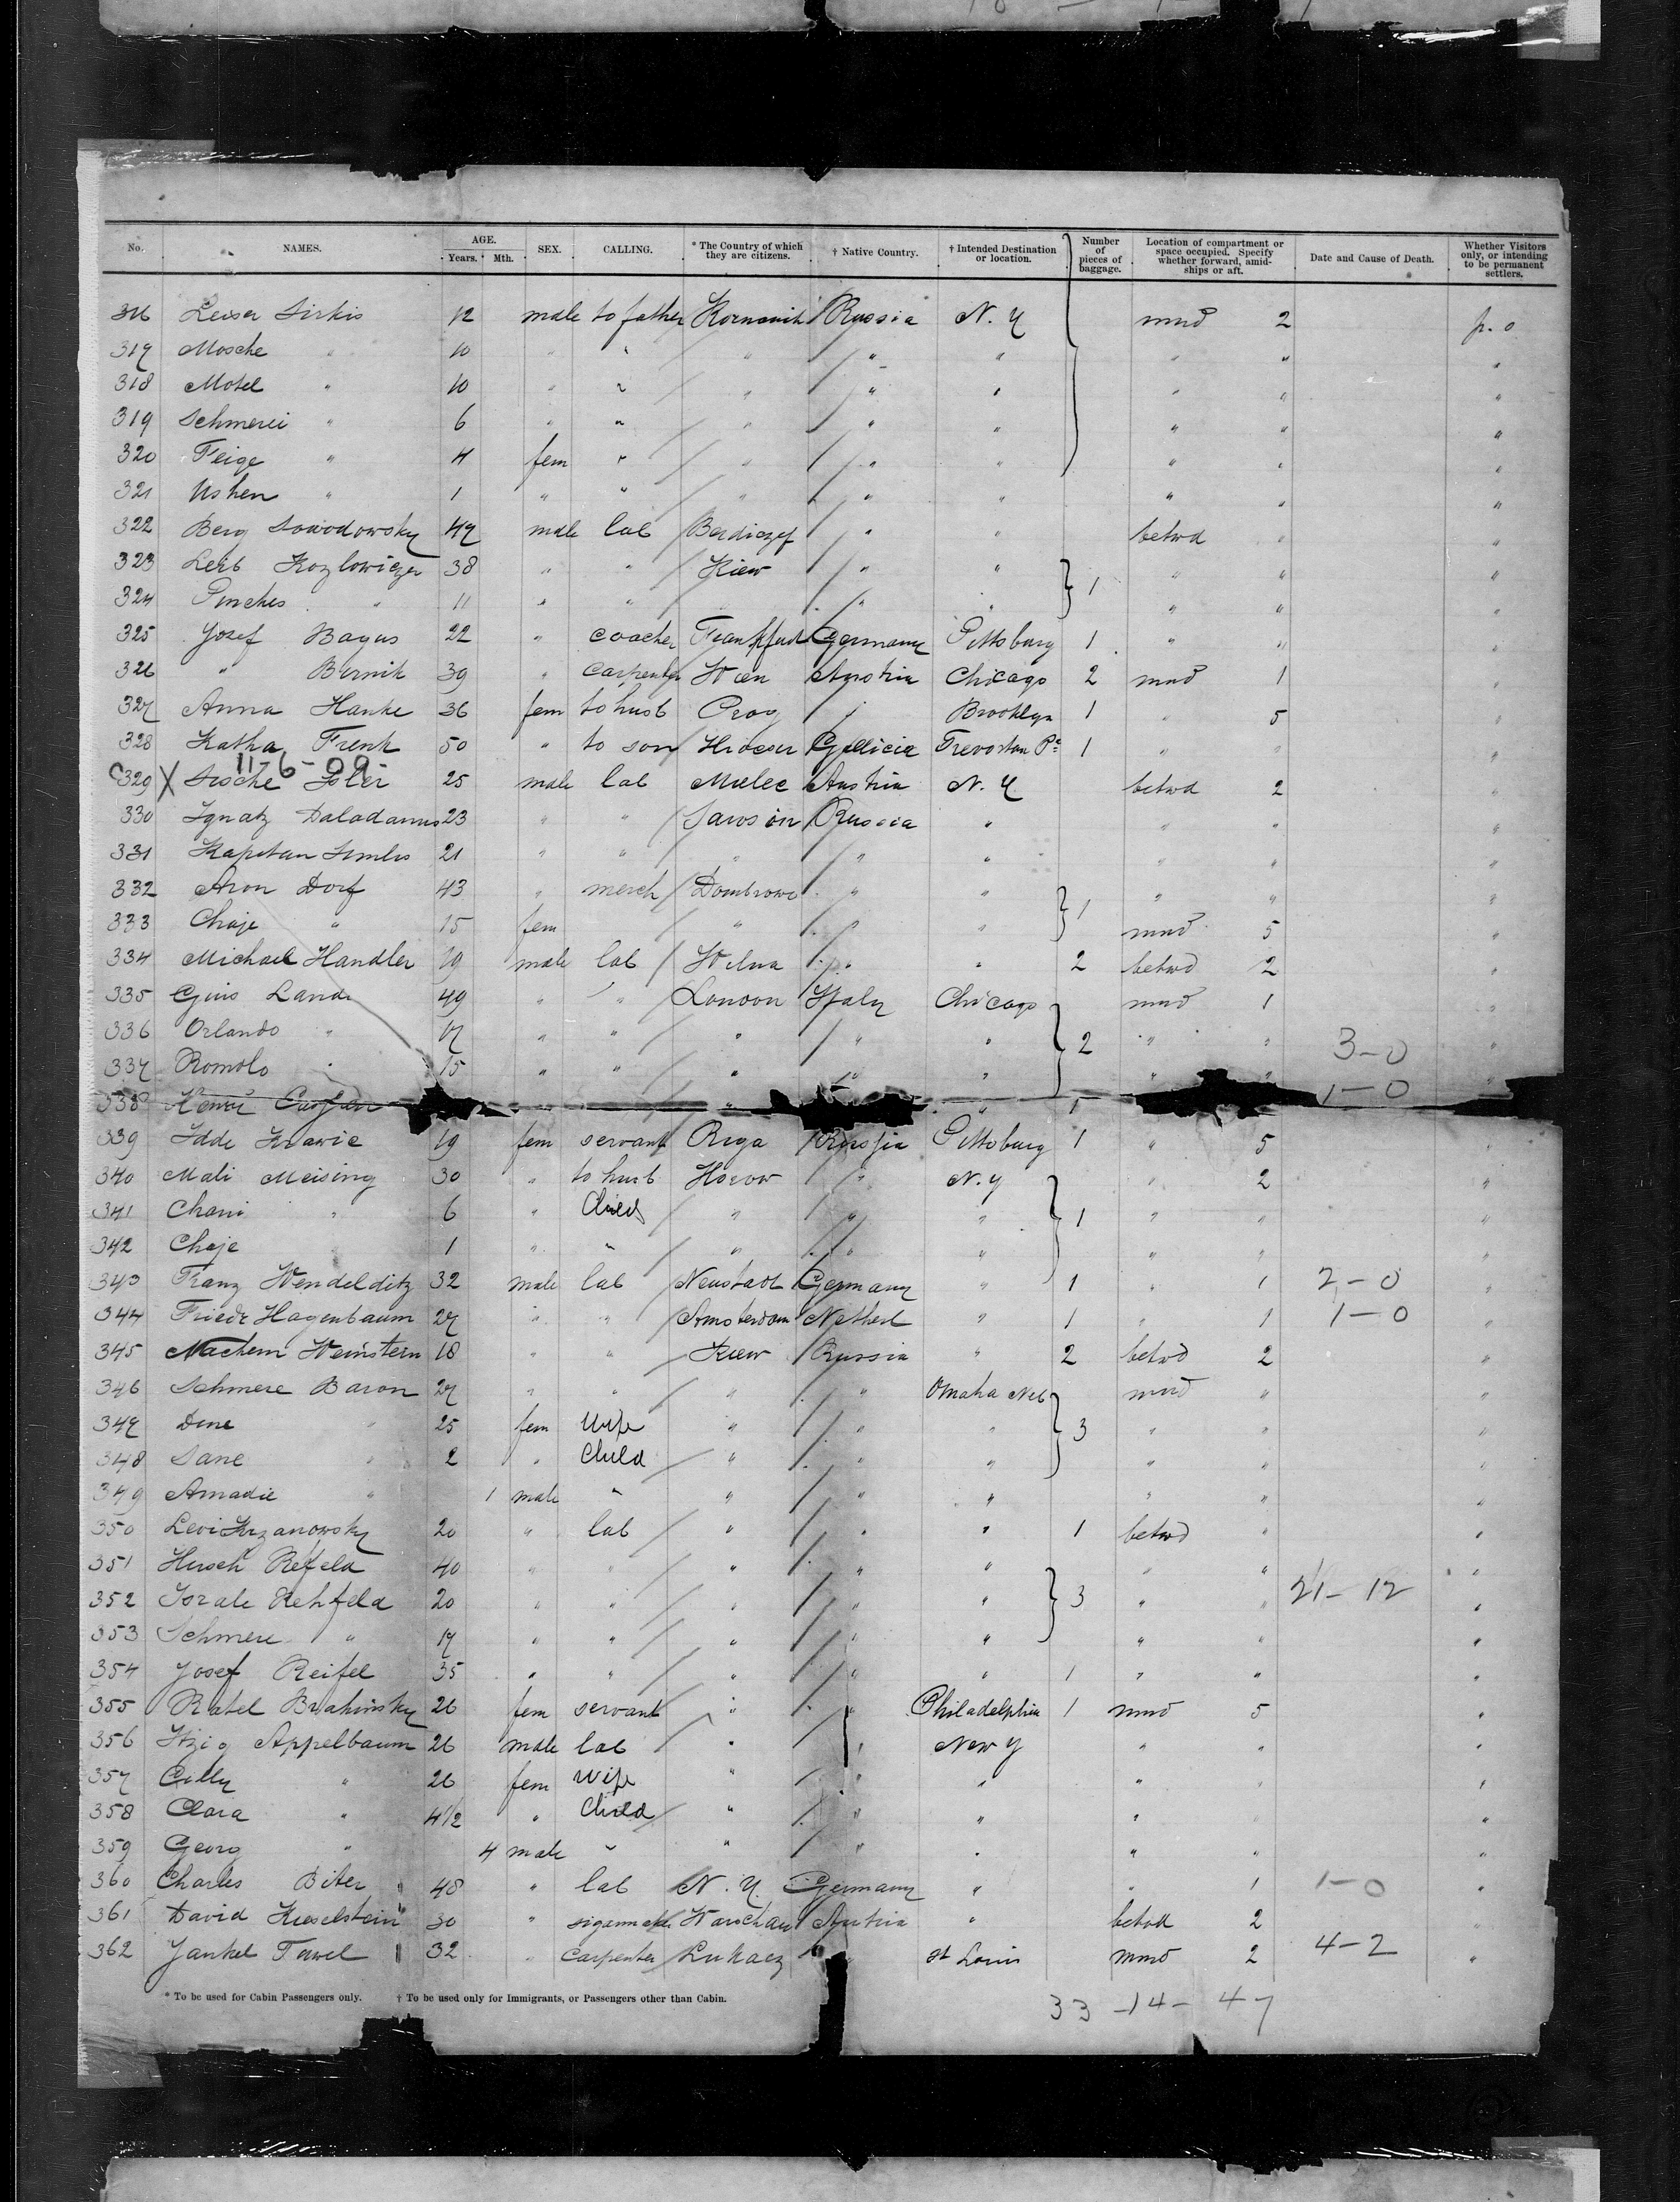 No. NAMES. AGE. Years. Mth. SEX. CALLING. * The Country of which they are citizens. † Native Country. † Intended Destination or location. Number of pieces of baggage. Location of compartment or space occupied. Specify whether forward, amidships or aft. Date and Cause of Death. Whether Visitors only, or intending to be permanent settlers.
316 Leiser Sirkis 12 male to father Russia N. Y mnd 2 p. o
317 Mosche " 10 " " " " " " " "
318 Motel " 10 " " " " " " " "
319 Schmerei " 6 " " " " " " " "
320 Feige " 4 fem " " " " " " "
321 Ushen " 1 " " " " " " " "
322 Berg Sowodowsky 47 male lab Berdiczef " " betwd " "
323 Leib Kozlowiczer 38 " " Kiew " " 1 " " "
324 Pinches " 11 " " " " " " "
325 Josef Bagus 22 " coacher Frankfurt Germany Pittsburg 1 " " "
326 " Burnik 39 " carpenter Wien Austria Chicago 2 mnd 1 "
327 Anna Hanke 36 fem to husb Prag " Brooklyn 1 " 5 "
328 Katha Frenk 50 " to son Gallicia Trevorton Pa 1 " " "
11-6-09
329 X Sische 25 male lab Mielec Austria N. Y. betwd 2 "
330 Ignatz Daladanus 23 " " Russia " " " "
331 Kapitan 21 " " " " " " " "
332 Aron Dorf 43 " merch Dombrowo " " 1 " " "
333 Chaje " 15 fem " " " mnd 5 "
334 Michael Handler 19 male lab Wilna " " 2 betwd 2 "
335 Landi 49 " " London Italy Chicago mnd 1 "
336 Orlando " 17 " " " " " 2 " " 3-0 "
337 Romolo " 15 " " " " " " " "
338 Henri 1 1-0
339 Idde Krawic 19 fem servant Riga Russia Pittsburg 1 " 5 "
340 Mali Meising 30 " to husb Horow " N. Y " 2 "
341 Chani " 6 " Child " " " 1 " " "
342 Chaje 1 " " " " " " " "
343 Franz Wendelditz 32 male lab Neustadt Germany " 1 " 1 2-0 "
344 Friedr Hagenbaum 27 " " Amsterdam Netherl " 1 " 1 1-0 "
345 Nachem Weinstern 18 " " Kiew Russia " 2 betwd 2 "
346 Schmere Baron 27 " " " " Omaha Neb mnd " "
347 Dine " 25 fem Wife " " " 3 " " "
348 Sane " 2 " Child " " " " " "
349 Amadie " 1 male " " " " " " "
350 Levi Krzanowsky 20 " lab " " " 1 betwd " "
351 Hirsch Refeld 40 " " " " " " " "
352 Israle Rehfeld 20 " " " " " 3 " " 21-12 "
353 Schmere " 17 " " " " " " " "
354 Josef Reifel 35 " " " " " 1 " " "
355 Ratel Brahinsky 26 fem servant " " Philadelphia 1 mnd 5 "
356 Itzig Appelbaum 26 male lab " " New Y " " "
357 Cilly " 26 fem Wife " " " " " "
358 Clara " 4 1/2 " Child " " " " " "
359 Georg " 4 male " " " " " " "
360 Charles Biter 48 " lab N. Y. Germany " " 1 1-0 "
361 David Kieselstein 30 " Warschau Austria " betwd 2 "
362 Jankel Tawel 32 " carpenter " St Louis mnd 2 4-2 "
* To be used for Cabin Passengers only. † To be used only for Immigrants, or Passengers other than Cabin.
33 - 14 - 47